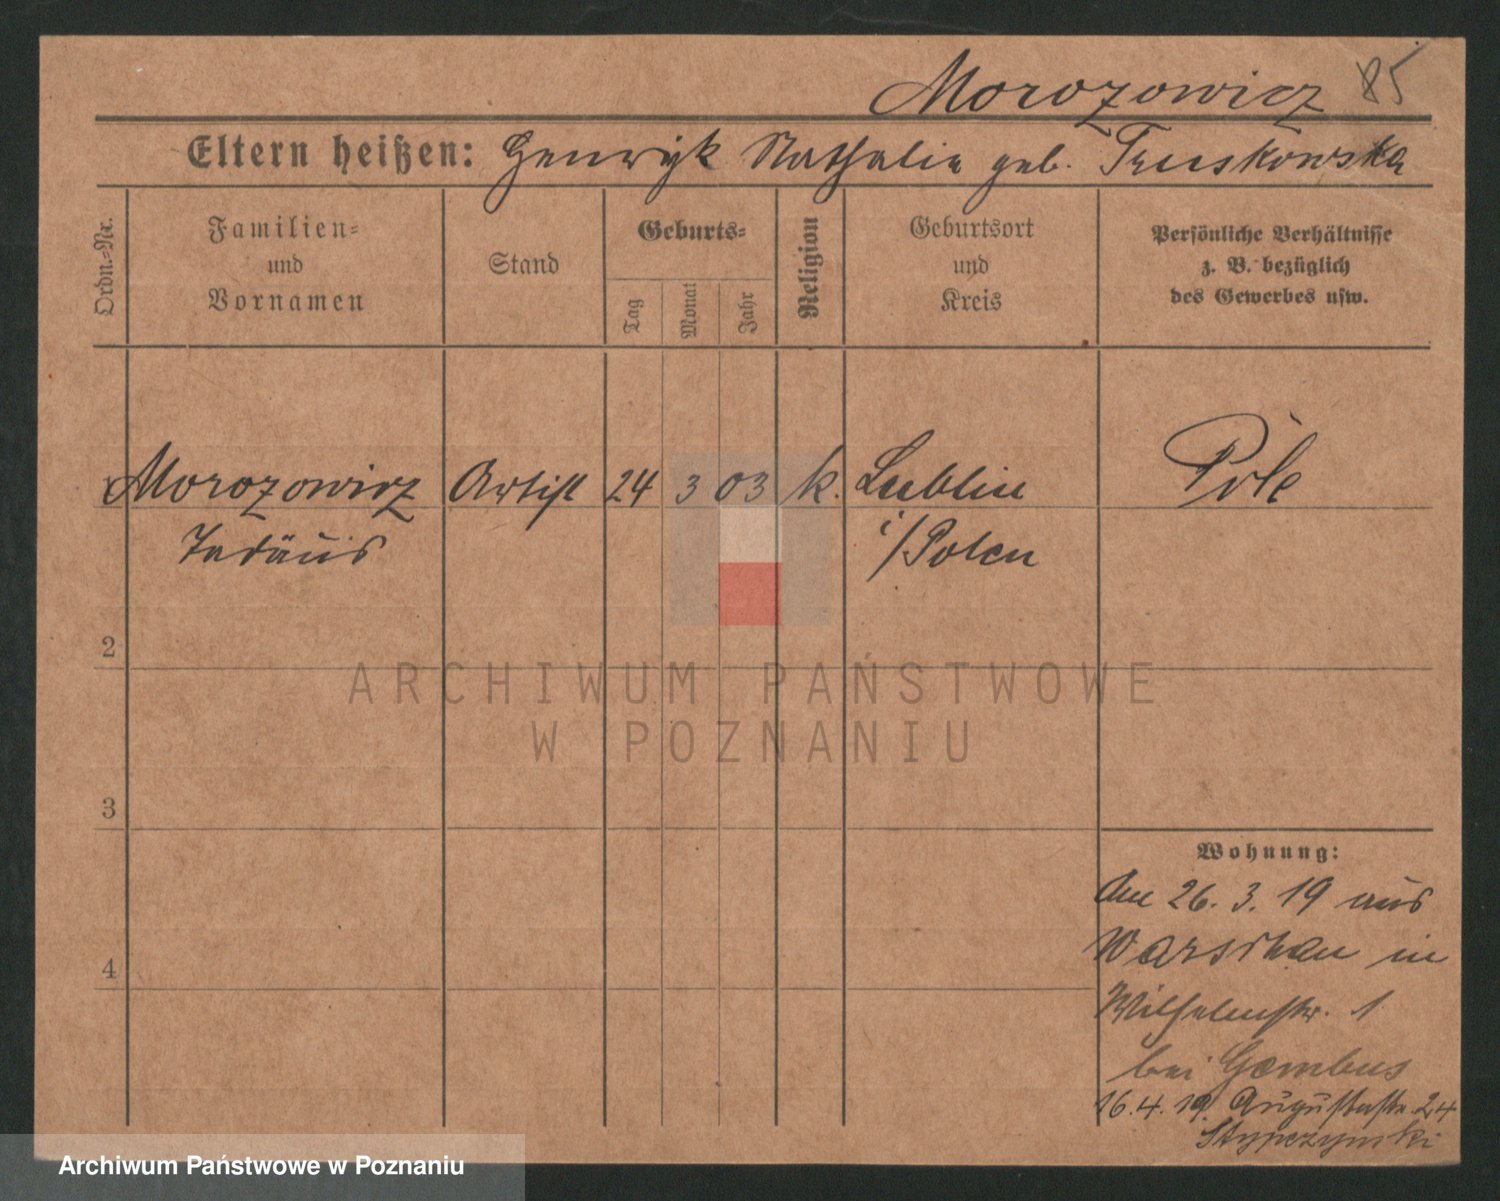 Morozowicz 85
Eltern heißen: Henryk Nathalie geb. Truskowska
Ordn.-Nr.
Familien-
und
Vornamen
Stand
Geburts-
Tag
Monat
Jahr
Religion
Geburtsort
und
Kreis
Persönliche Verhältnisse
z. B. bezüglich
des Gewerbes usw.
Morozowicz Artist 24 3 03 k. Lublin Pole
Tadäus i/Polen
2
3
4
ARCHIWUM PAŃSTWOWE
W POZNANIU
Wohnung:
den 26. 3. 19 aus
Warschau in
Wilhelmstr. 1
bei Gombus
16.4.19 Augustastr. 24
Stypczynski
Archiwum Państwowe w Poznaniu